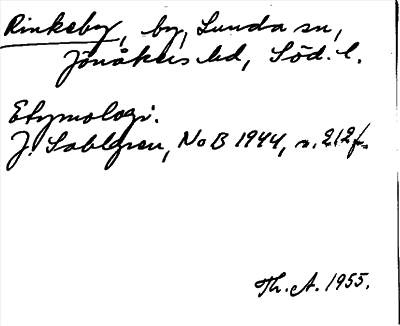 Rinkeby, by, Lunda sn,
Jönåkers hd, Söd. l.
Etymologi.
J. Sahlgren, NoB 1944, s. 212f.
Th. A. 1955.